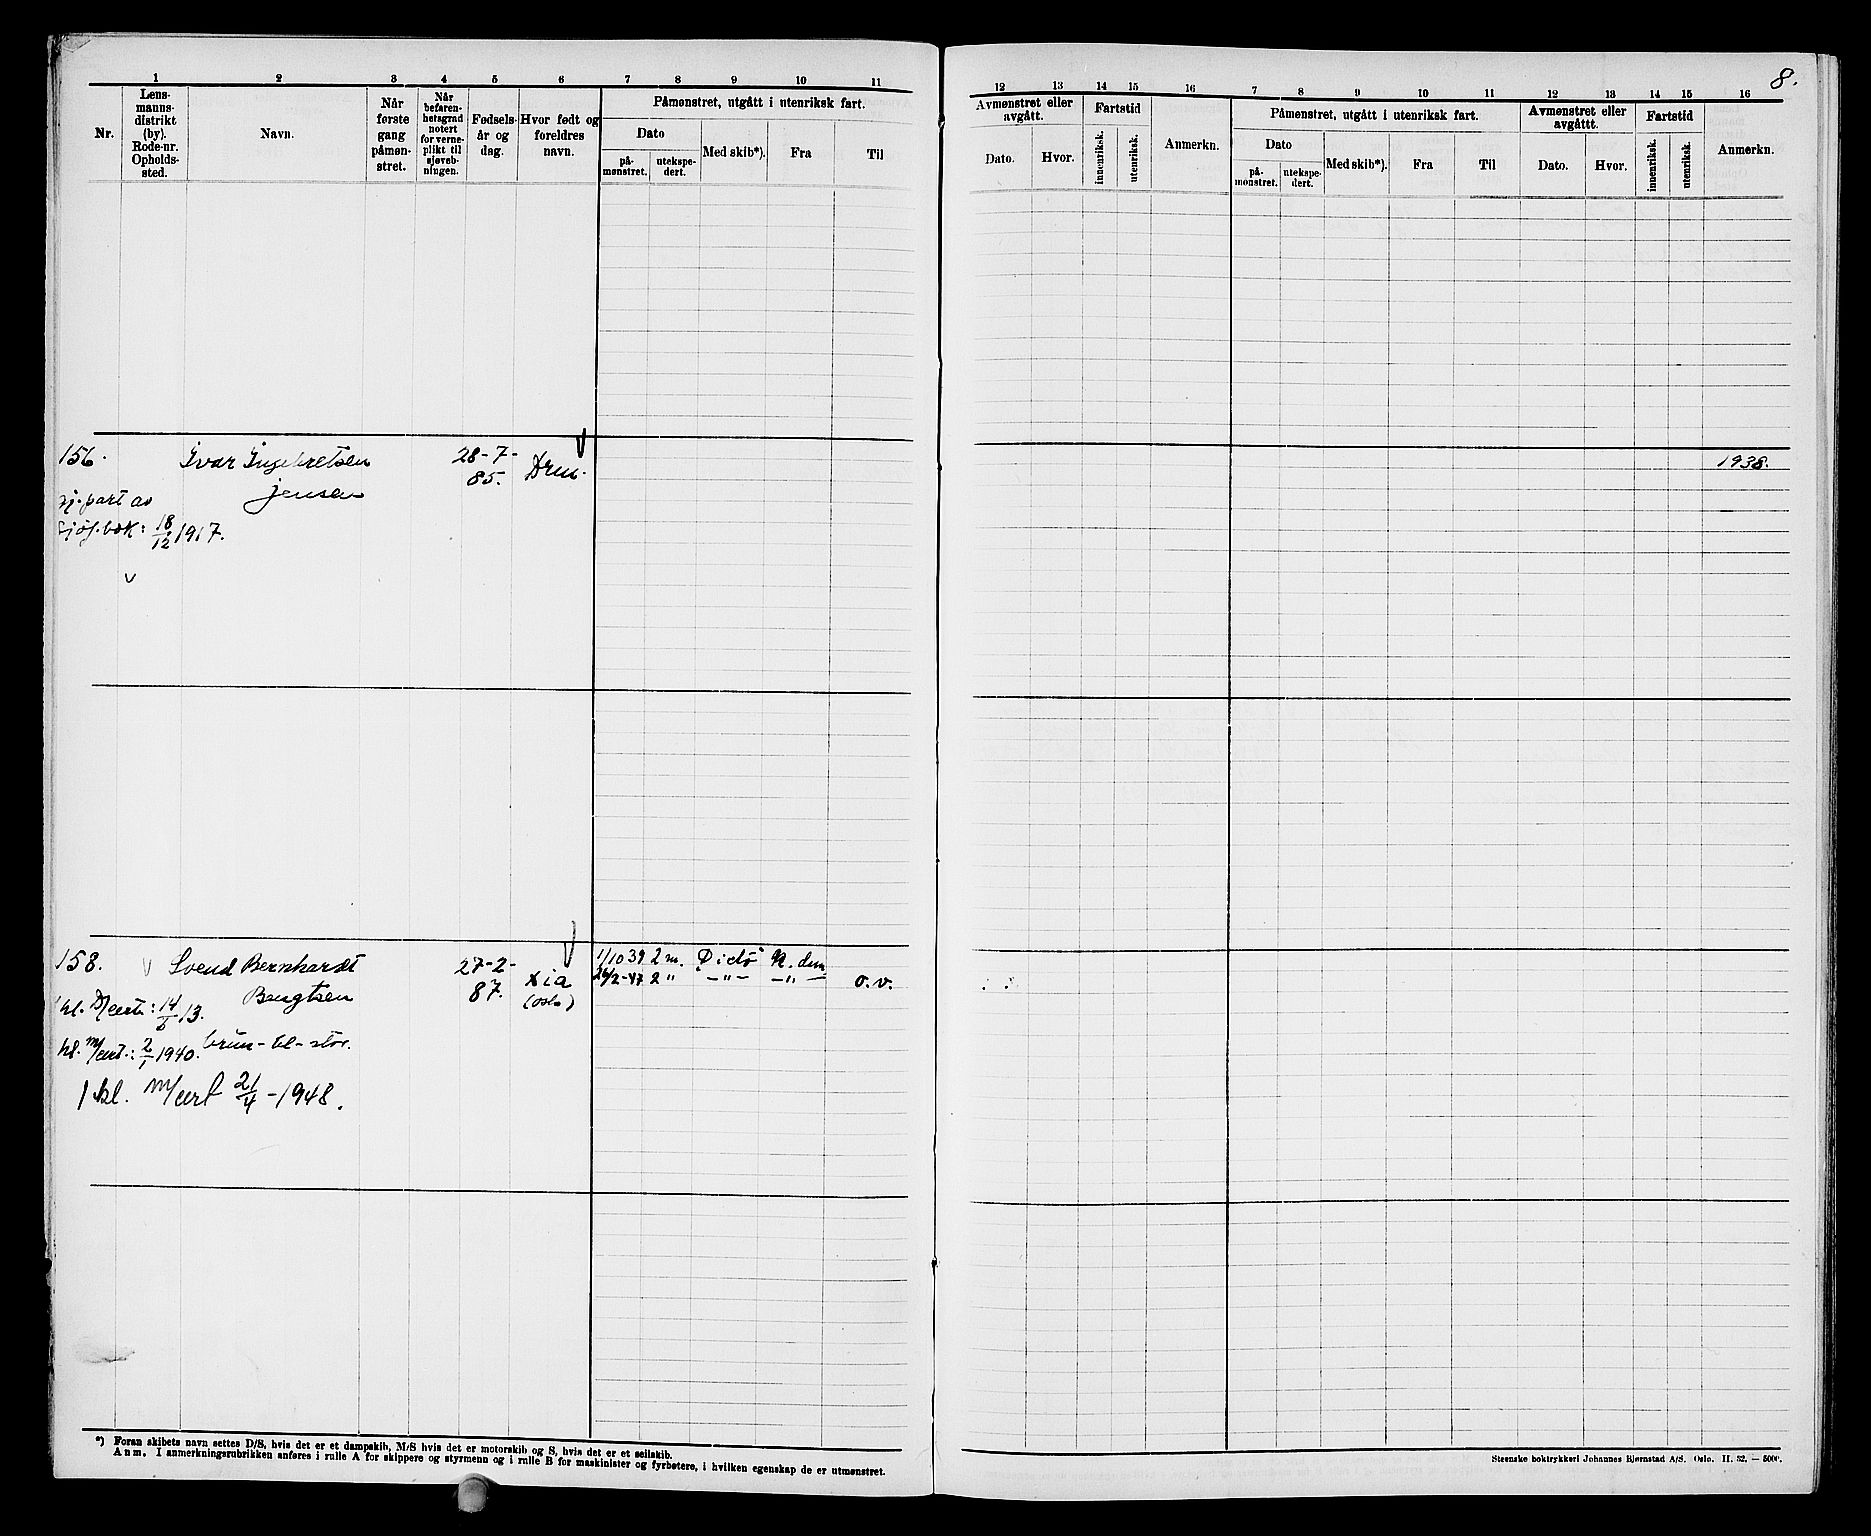 8.
1 2 3 4 5 6 7 8 9 10 11
Nr.
Lens-
manns-
distrikt
(by).
Rode-nr.
Opholds-
sted.
Navn.
Når
første
gang
påmøn-
stret.
Når
befaren-
hetsgrad
notert
for verne-
plikt til
sjøveb-
ningen.
Fødsels-
år og
dag.
Hvor født og
foreldres
navn.
Påmønstret, utgått i utenriksk fart.
Dato
på-
mønstret.
utekspe-
dert.
Med skib*).
Fra
Til
12 13 14 15 16 7 8 9 10 11 12 13 14 15 16
Avmønstret eller
avgått.
Dato.
Hvor.
Fartstid
innenriksk.
utenriksk.
Anmerkn.
Påmønstret, utgått i utenriksk fart.
Dato
på-
mønstret.
utekspe-
dert.
Med skib*).
Fra
Til
Avmønstret eller
avgåttt.
Dato.
Hvor.
Fartstid
innenriksk.
utenriksk.
Anmerkn.
156. Ivar Ingebretsen 28-7- Drm. 1938.
Jensen 85.
part av
bok: 18/12 1917.
158. Svend Bernhardt 27-2- 1/10 39 2 m. N. dem
Bengtsen 87. Xia 26/2-47 2 " -"- -"- o.v.
(Oslo)
kl. D/cert.: 14/ 13.
kl. m/cert.: 2/1 1940. brun-bl-stor.
1 kl. m/cert 21/4-1948.
*) Foran skibets navn settes D/S, hvis det er et dampskib, M/S hvis det er motorskib og S, hvis det er et seilskib.
Anm. I anmerkningsrubrikken anføres i rulle A for skippere og styrmenn og i rulle B for maskinister og fyrbøtere, i hvilken egenskap de er utmønstret.
Steenske boktrykkeri Johannes Bjørnstad A/S. Oslo. II. 32. — 5000.